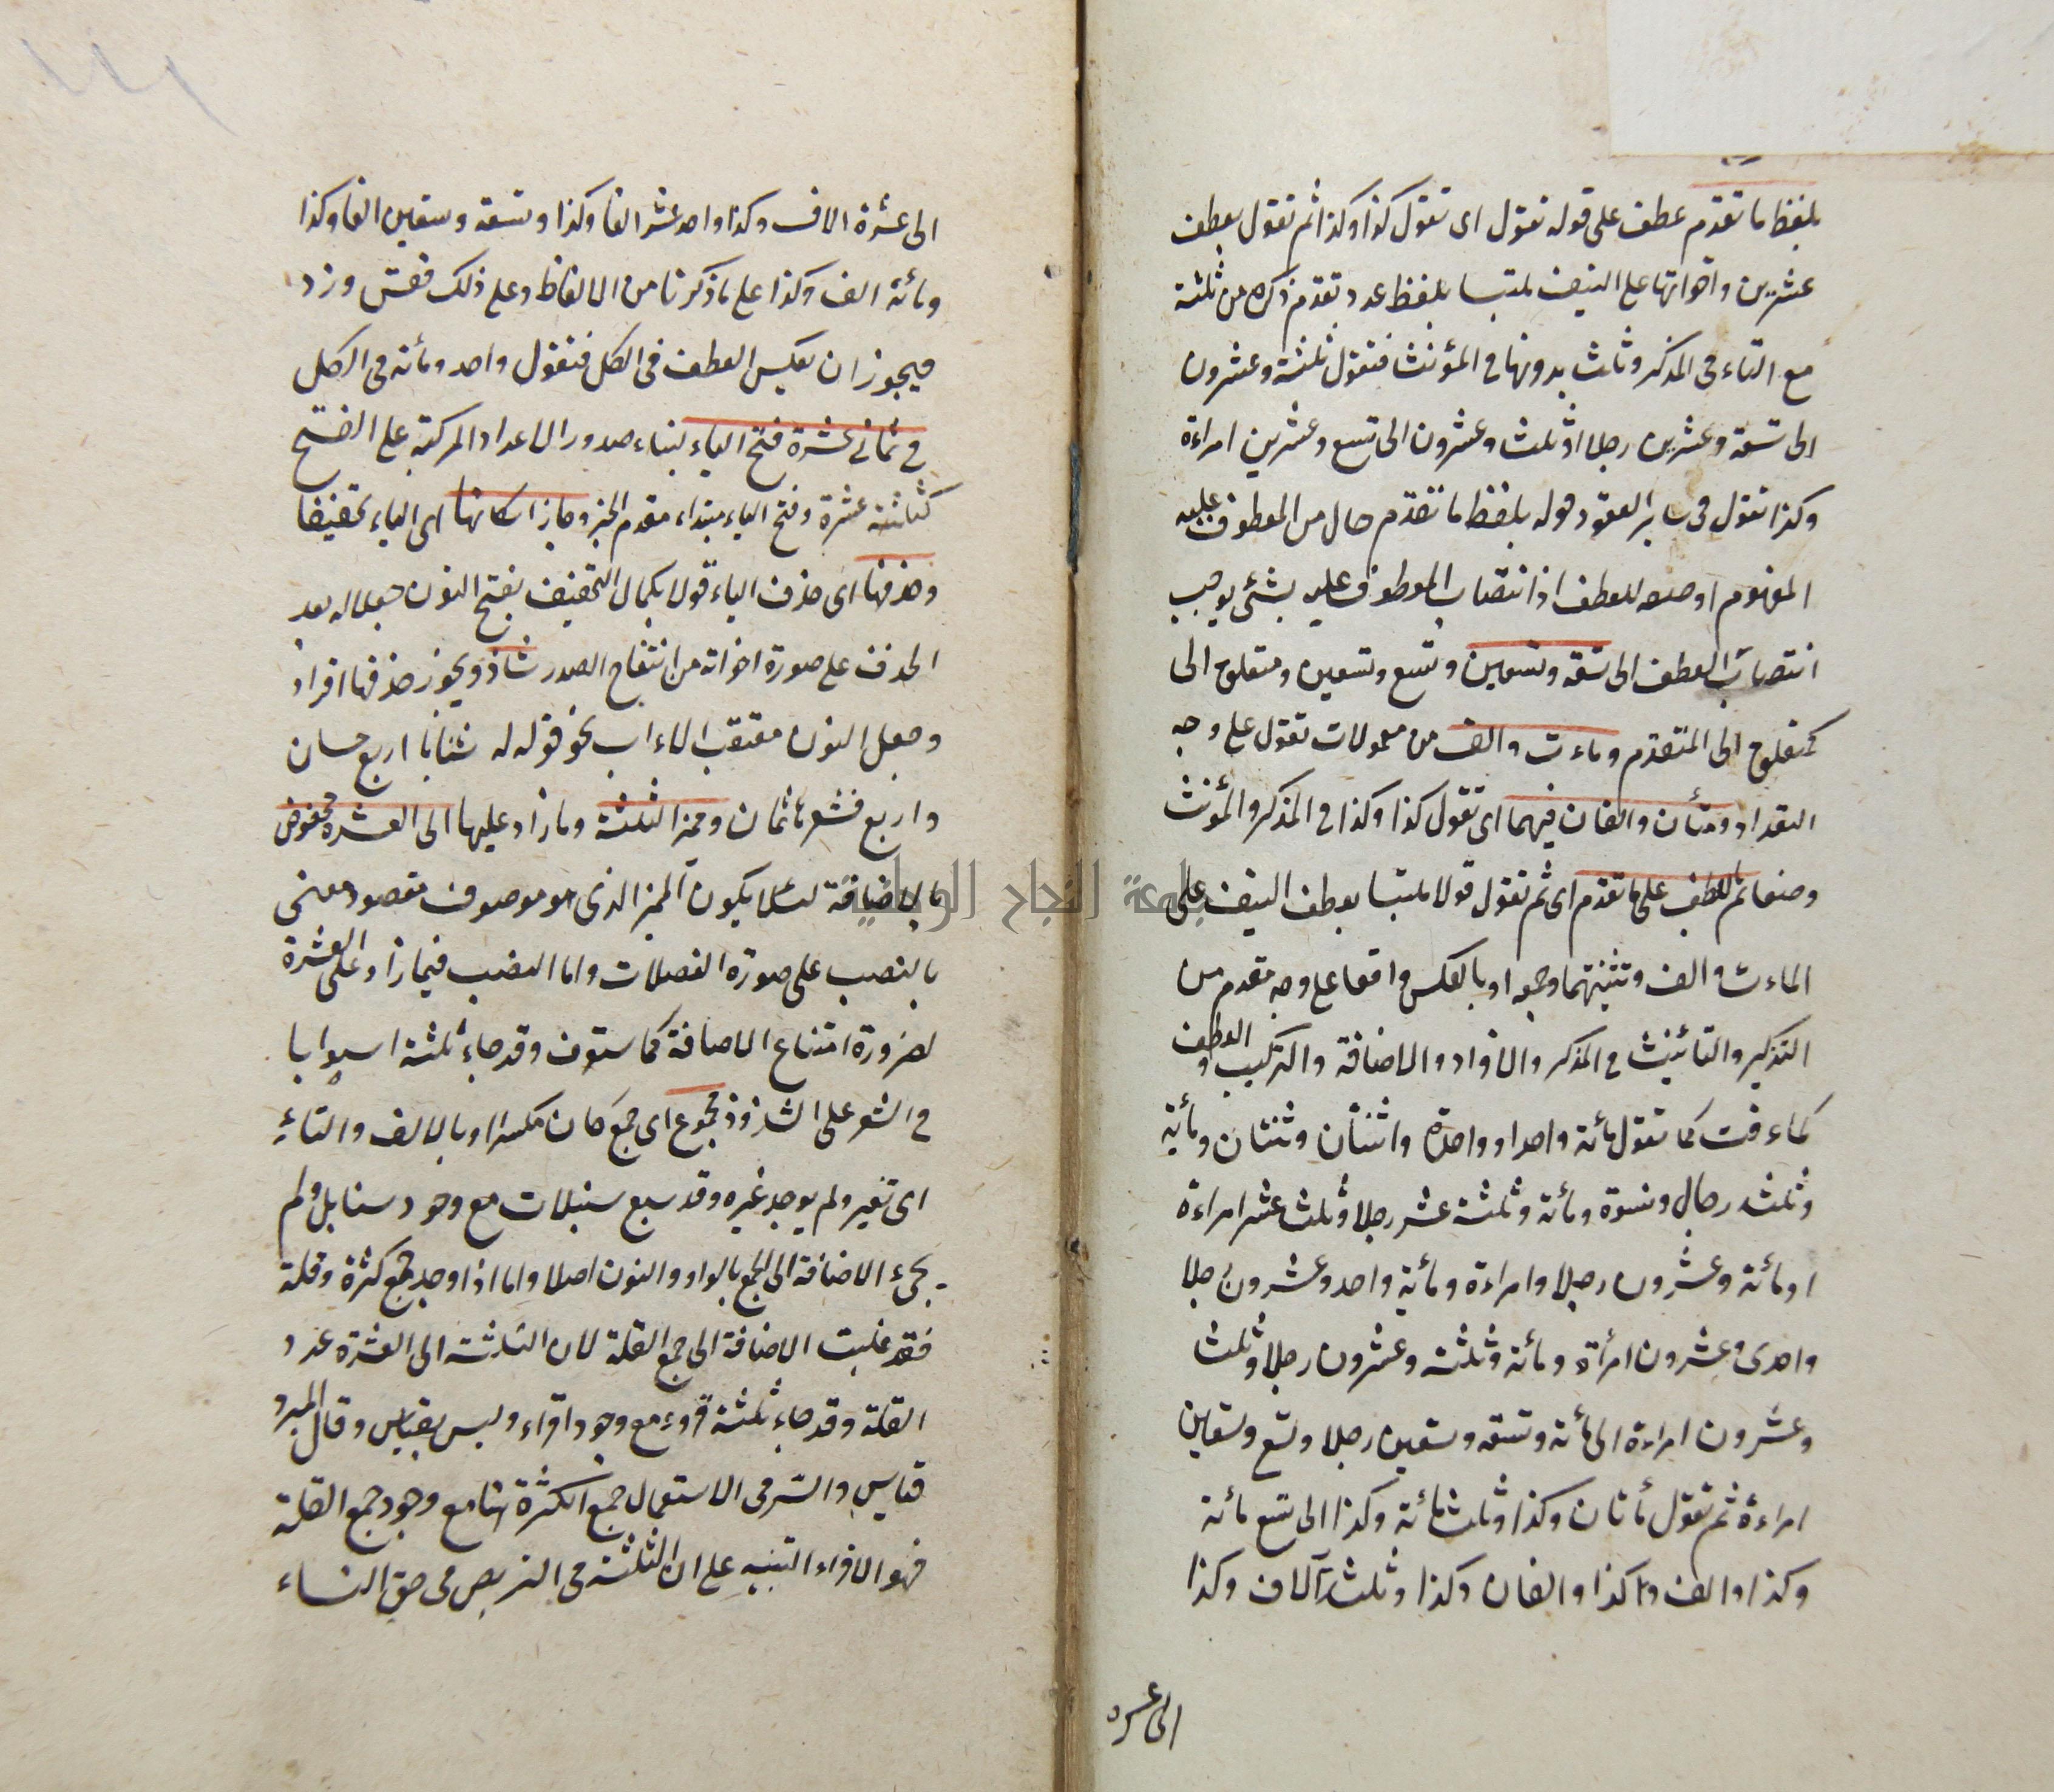 بلفظ ما تقدم عطف على قوله تقول اى تقول كذا وكذا ثم تقول بعطف
عشرين واخواتها على النيف ملتبسا بلفظ عدد تقدم ذكره من ثلثة
مع التاء فى المذكر وثلث بدونها فى المؤنث فتقول ثلثة وعشرون
الى تسعة وعشرين رجلا او ثلث وعشرون الى تسع وعشرين امراءة
وكذا تقول فى ساير العقود قوله بلفظ ما تقدم حال من المعطوف عليه
المفهوم او صلة للعطف اذ انتصاب المعطوف عليه بشئ يوجب
انتصاب العطف الى تسعة وتسعين وتسع وتسعين ومتعلق الى
كمتعلق الى المتقدم وماءت والف من معمولات تقول على وجه
التعداد ومئتأن والفان فيهما اى تقول كذا وكذا فى المذكر والمؤنث
ثم بالعطف على ما تقدم اى ثم تقول قولا ملتبسا بعطف النيف على
الماءت والف وتثنيتهما وجمعه او بالعكس واقعا على وجه تقدم من
التذكير والتانيث فى المذكر والافراد والاضافة والتركيب والعطف
كماعرفت كما تقول مائة واحد او واحدة واثنتان وثنتان ومائة
وثلثه رجال ونسوة ومائة وثلثة عشر رجلا وثلث عشر امراءة
او مائة وعشرون رجلا وامراءة ومائة واحد وعشرون رجلا
واحدى وعشرون امرأة ومائة وثلثة وعشرون رجلا وثلث
وعشرون امراءة الى مائة وتسعة وتسعين رجلا وتسع وتسعين
امراءة ثم تقول مأتان وكذا وثلث مائة وكذا الى تسع مائة
وكذا والف وكذا والفان وكذا وثلث آلاف وكذا
الى عشرة
الى عشرة الاف وكذا واحد عشر الفا وكذا وتسعة وتسعين الفا وكذا
ومائة الف وكذا على ما ذكرنا من الالفاظ وعلى ذلك فقس وزد
فيجوز ان يعكس العطف فى الكل فتقول واحد ومائة فى الكل
فى ثمانى عشرة فتح الياء لبناء صدور الاعداد المركبة على الفتح
كثلثة عشرة وفتح الياء مبتداء مقدم الخبر وجاز اسكانها اى الياء تخفيفا
وحذفها اى حذف الياء قولا بكمال التخفيف بفتح النون جعلا له بعد
الحذف على صورة اخواته من انفتاح الصدر شاذ ويجوز حذفها افراد
وجعل النون معتقب الاعراب نحو قوله له ثنايا اربع حسان
واربع فثغرها ثمان ومميز الثلثة وما زاد عليها الى العشرة مخفوض
بالاضافة لئلا يكون المميز الذى هو موصوف مقصود معنى
بالنصب على صورة الفضلات واما النصب فيما زاد على العشرة
لضرورة امتناع الاضافة كما ستعرف وقد جاء ثلثة اثوابا
فى الشعر على الشذوذ مجموع اى جمع كان مكسرا وبالالف والتاء
اى تغير ولم يوجد غيره وقد سبع سنبلات مع وجود سنابل ولم
يجىء الاضافة الى الجمع بالواو والنون اصلا واما اذا وجد جمع كثرة وقلة
فقد غلبت الاضافة الى جمع القلة لان الثلاثة الى العشرة عدد
القلة وقد جاء ثلثة قروء مع وجود اقراء وليس بقياس وقال المبرد
قياس والسر فى الاستعمال جمع الكثرة هنا مع وجود جمع القلة
فهو الاقراء التنبيه على ان الثلثة فى التربص فى حق النساء
جامعة النجاح الوطنية